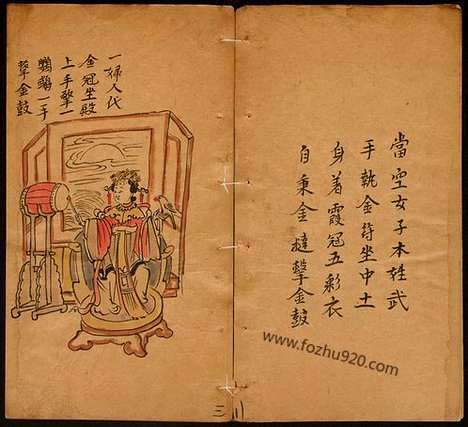 當空女子本姓武
手執金符坐中土
身着霞冠五彩衣
自秉金撻擊金鼓
www.fozhu920.com
一婦人代
金冠坐殿
上手擎一
鸚鵡一手
擊金鼓
三